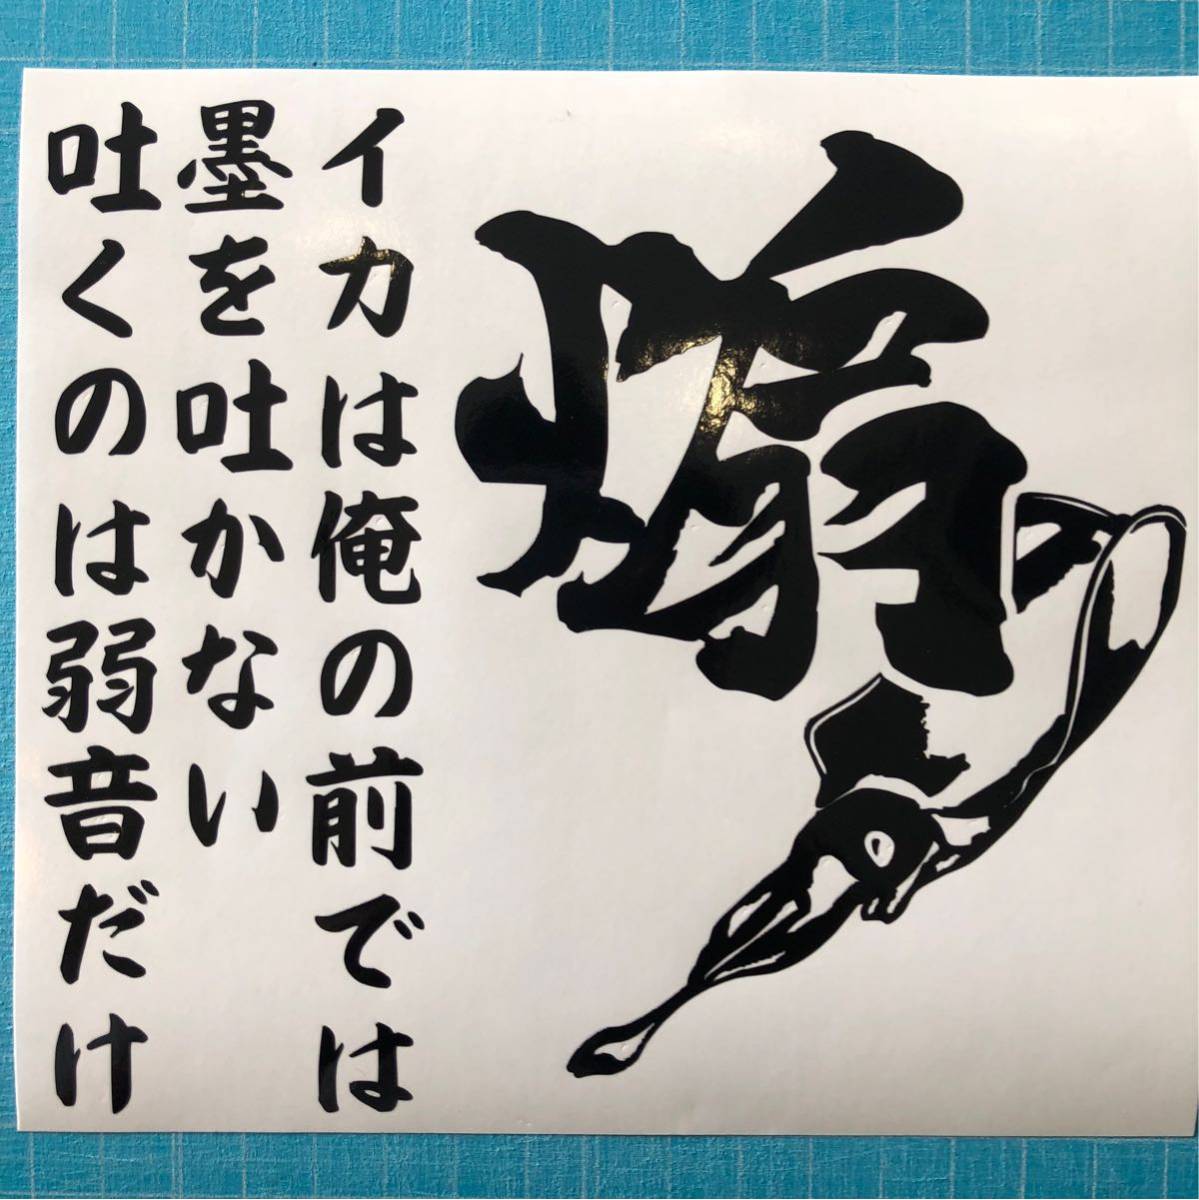 煽
イカは俺の前では
墨を吐かない
吐くのは弱音だけ